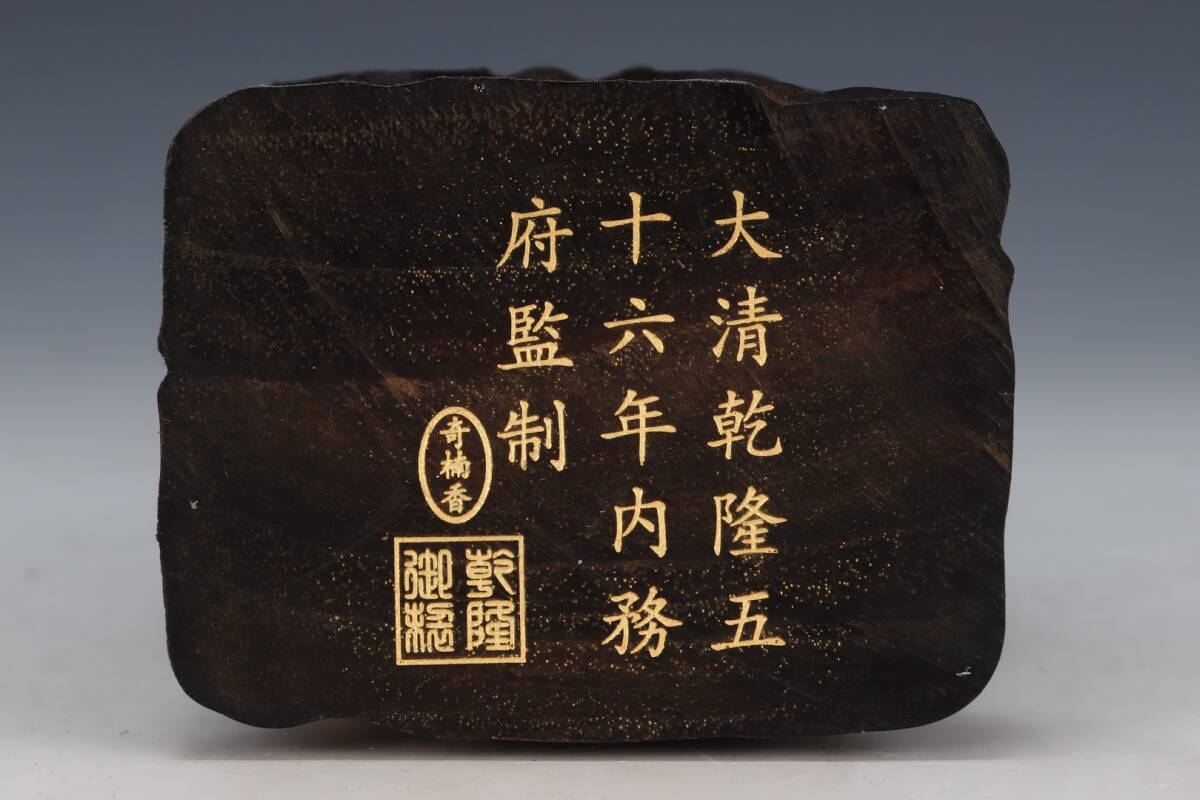 大清乾隆五
十六年内務
府監制
奇楠香
乾隆
御